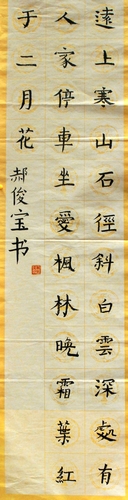 遠上寒山石徑斜白雲深處有
人家停車坐愛楓林晚霜葉紅
于二月花
郝俊宝书